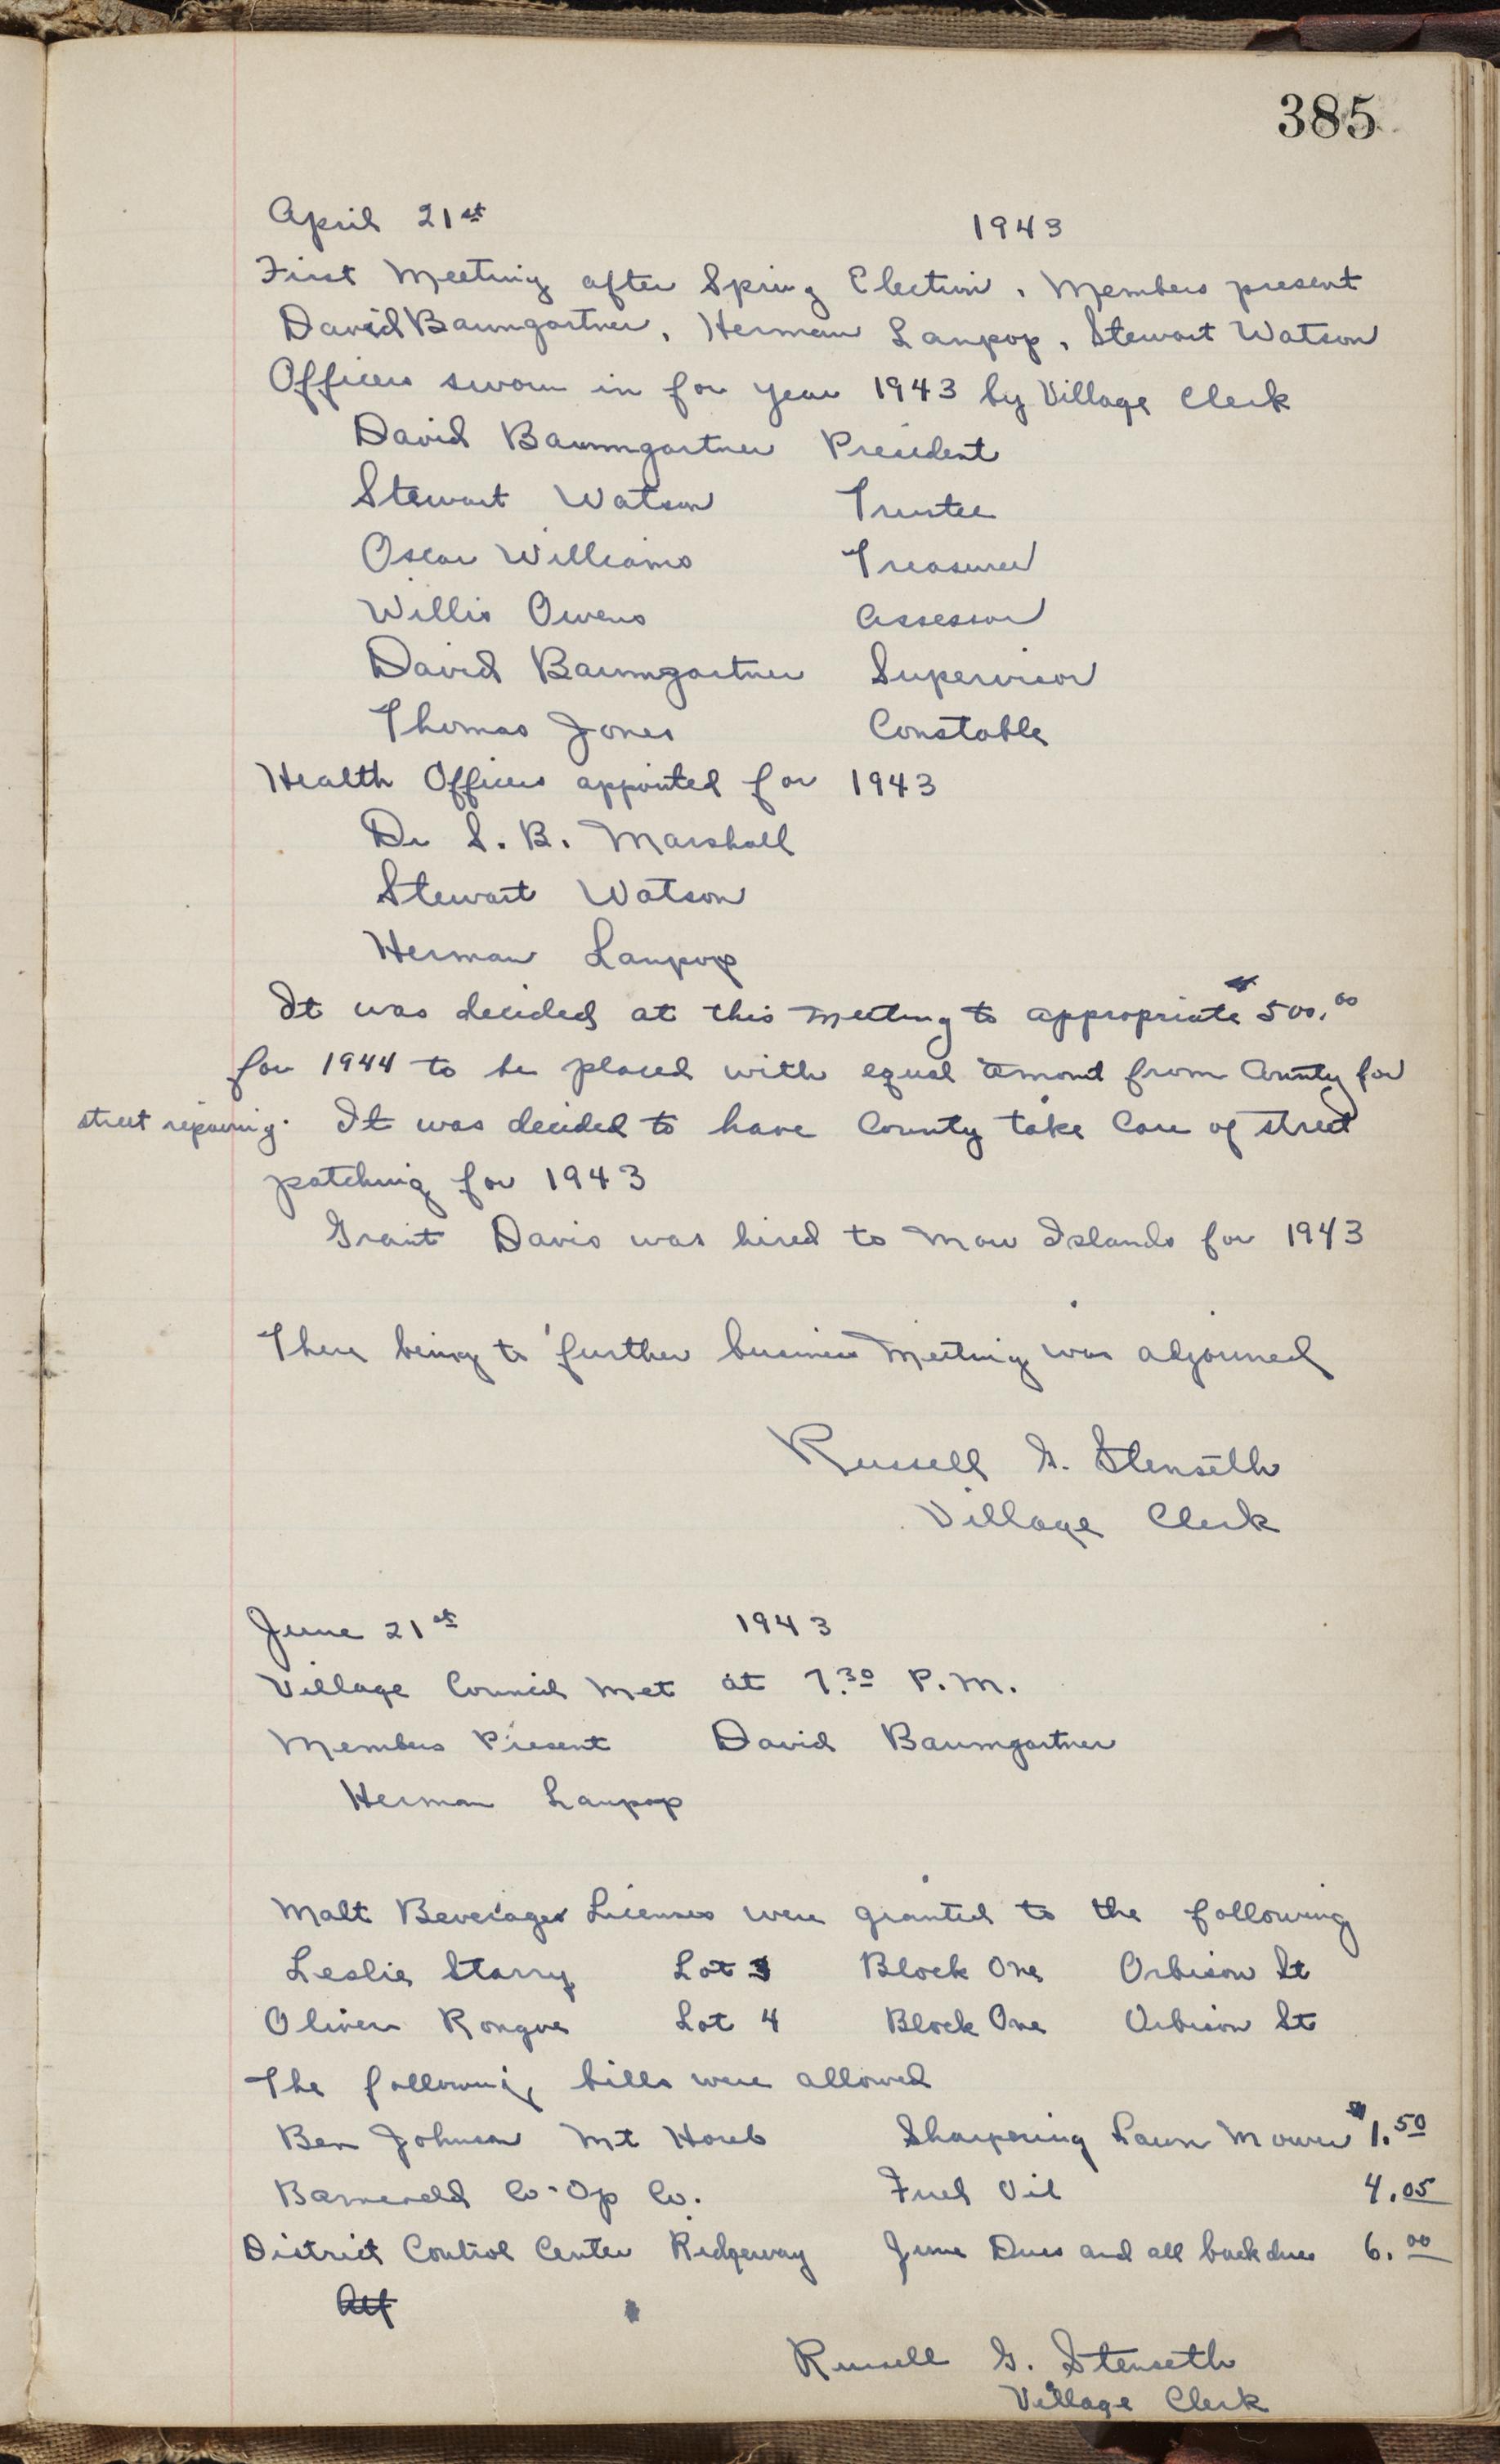 385
April 21st 1943
First Meeting after Spring Election. Members present
David Baumgartner, Herman Laupop, Stewart Watson
Officers sworn in for year 1943 by Village Clerk
David Baumgartner President
Stewart Watson Trustee
Oscar Williams Treasurer
Willis Owens Assessor
David Baumgartner Supervisor
Thomas Jones Constable
Health Officers appointed for 1943
Dr S. B. Marshall
Stewart Watson
Herman Laupop
It was decided at this meeting to appropriate $500.00
for 1944 to be placed with equal amont from County for
street repairing. It was decided to have County take Care of street
patching for 1943
Grant Davis was hired to Mow Islands for 1943
There being to further business Meeting was adjourned
Russell G. Stenseth
Village Clerk
June 21st 1943
Village Council Met at 7.30 P.M.
Members Present David Baumgartner
Herman Laupop
Malt Beverages Licenses were granted to the following
Leslie Starry Lot 3 Block One Orbison St
Oliver Rongve Lot 4 Block One Orbison St
The following bills were allowed
Ben Johnson Mt Horeb Sharpening Lawn Mower $1.50
Barneveld Co-Op Co. Fuel Oil 4.05
District Control Center Ridgeway June Dues and all back dues 6.00
Russell G. Stenseth
Village Clerk